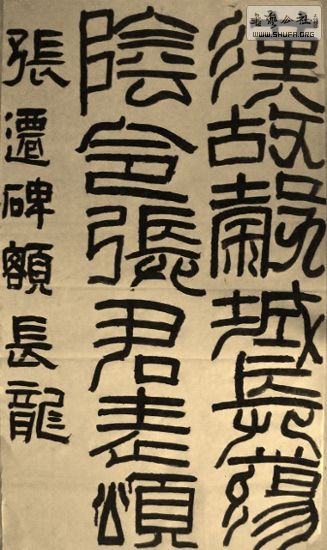 漢故穀城長蕩
陰令張君表頌
張遷碑額長龍
WWW.SHUFA.ORG